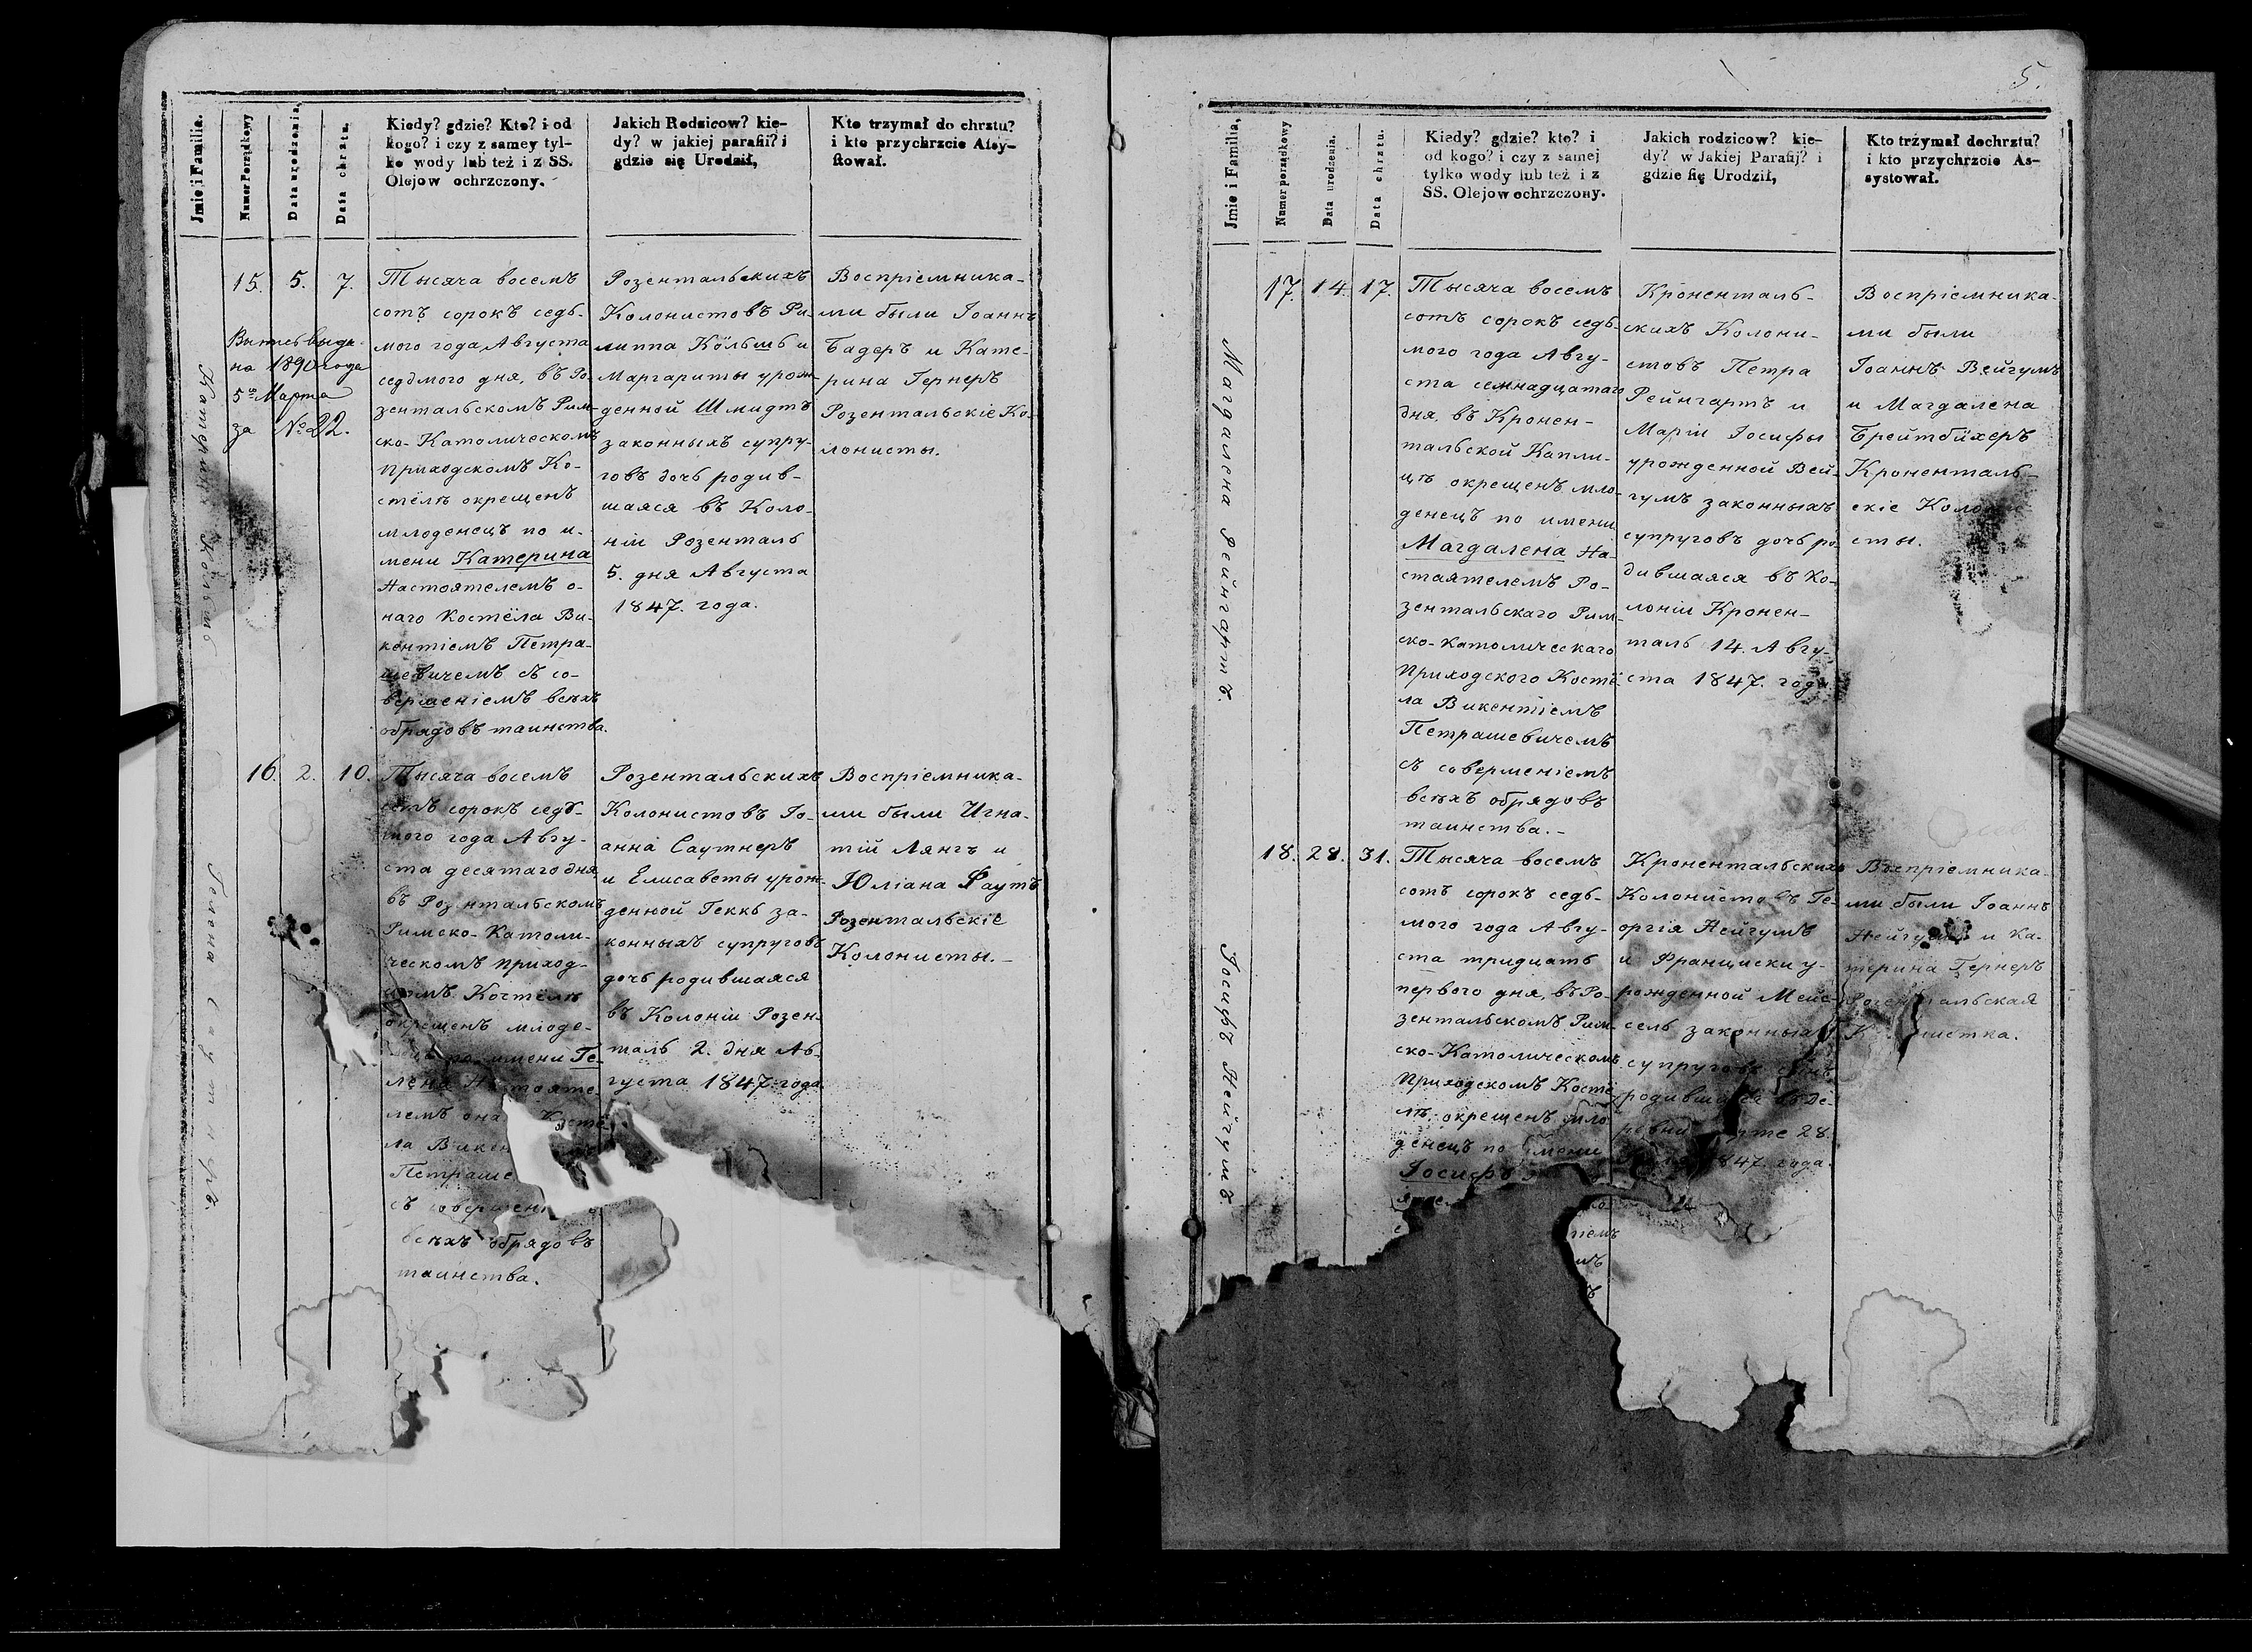 Jmie i Familia.
Numer Porządkowy
Data urodzenia.
Data chrztu.
Kiedy? gdzie? Kto? i od
kogo? i czy z samey tyl-
ko wody lub też i z SS.
Olejow ochrzczony.
Jakich Rodzicow? kie-
dy? w jakiej parafii? i
gdzie się Urodził,
Kto trzymał do chrztu?
i kto przychrzcie Assy-
stował.
Катерина
15. 5. 7.
на 1890 года
5го Марта
за № 22.
Тысяча восемъ
сотъ сорокъ седь-
мого года Августа
седьмого дня, въ Ро-
зентальскомъ Рим-
ско-Католическомъ
Приходскомъ Ко-
стёлѣ окрещенъ
младенецъ по и-
мени Катерина
Настоятелемъ о-
наго Костёла Ви-
кентіемъ Петра-
шевичемъ съ со-
вершеніемъ всѣхъ
обрядовъ таинства.
Розентальскихъ
Колонистовъ Фи-
липпа Кöльшъ и
Маргариты урож-
денной Шмидтъ
законныхъ супру-
говъ дочь родив-
шаяся въ Коло-
ніи Розенталь
5. дня Августа
1847. года.
Воспріемника-
ми были Іоаннъ
Бадеръ и Кате-
рина Гернеръ
Розентальскіе Ко-
лонисты.
Гелена Саутнеръ.
16. 2. 10.
Тысяча восемъ
сотъ сорокъ седь-
мого года Авгу-
ста десятаго дня,
въ Розентальскомъ
Римско-Католи-
ческомъ приход-
скомъ Костёлѣ
окрещенъ младе-
по имени Ге-
лена
лемъ
ла Викен
Петраше
съ совершен
всѣхъ обрядовъ
таинства.
Розентальскихъ
Колонистовъ Іо-
анна Саутнеръ
и Елисаветы урож-
денной Геккъ за-
конныхъ супруговъ
дочь родившаяся
въ Колоніи Розен-
таль 2. дня Ав-
густа 1847. года.
Воспріемника-
ми были Игна-
тій Лянгъ и
Юліана Фаутъ
Розентальскіе
Колонисты.-
5.
Jmie i Familia,
Numer porządkowy
Data urodzenia.
Data chrztu.
Kiedy? gdzie? kto? i
od kogo? i czy z samej
tylko wody lub też i z
SS. Olejow ochrzczony.
Jakich rodzicow? kie-
dy? w Jakiej Parafij? i
gdzie się Urodził,
Kto trzymał dochrztu?
i kto przychrzcie As-
systował.
Магдалена Рейнгартъ.
17. 14. 17.
Тысяча восемъ
сотъ сорокъ седь-
мого года Авгу-
ста семнадцатаго
дня, въ Кронен-
тальской Капли-
цѣ окрещенъ мла-
денецъ по имени
Магдалена На-
стоятелемъ Ро-
зентальскаго Рим-
ско-Католическаго
Приходского Костё-
ла Викентіемъ
Петрашевичемъ
съ совершеніемъ
всѣхъ обрядовъ
таинства.-
Кроненталь-
скихъ Колони-
стовъ Петра
Рейнгартъ и
Маріи Іосифы
урожденной Вей-
гумъ законныхъ
супруговъ дочь ро-
дившаяся въ Ко-
лоніи Кронен-
таль 14. Авгу-
ста 1847. года
Воспріемника-
ми были
Іоаннъ Вейгумъ
и Магдалена
Брейтбïхеръ
Кроненталь-
скіе
сты.
Іосифъ Нейгумъ
18. 28. 31.
Тысяча восемъ
сотъ сорокъ седь-
мого года Авгу-
ста тридцать
первого дня, въ Ро-
зентальскомъ Рим-
ско-Католическомъ
Приходскомъ Костё-
лѣ, окрещенъ мла-
денецъ по имени
Іосифъ
Кронентальскихъ
Колонистовъ Ге-
оргія Нейгумъ
и Франциски у-
рожденной Мейс-
сель законныхъ
супруговъ сынъ
родившійся въ Де-
28.
1847. года.
Воспріемника-
ми были Іоаннъ
Нейгумъ и Ка-
терина Гернеръ
Розентальская